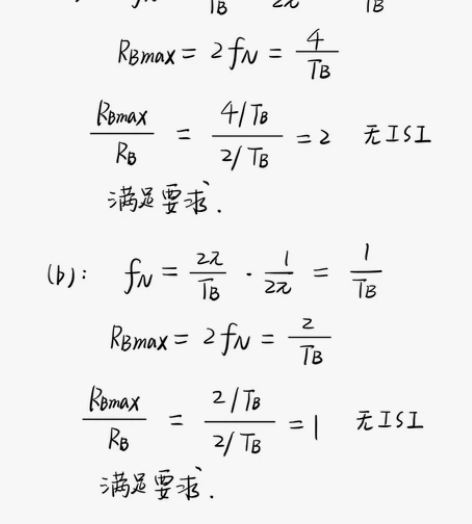 R_Bmax = 2f_N = 4/T_B
R_Bmax/R_B = (4/T_B)/(2/T_B) = 2 无ISI
满足要求.
(b): f_N = 2π/T_B · 1/2π = 1/T_B
R_Bmax = 2f_N = 2/T_B
R_Bmax/R_B = (2/T_B)/(2/T_B) = 1 无ISI
满足要求.